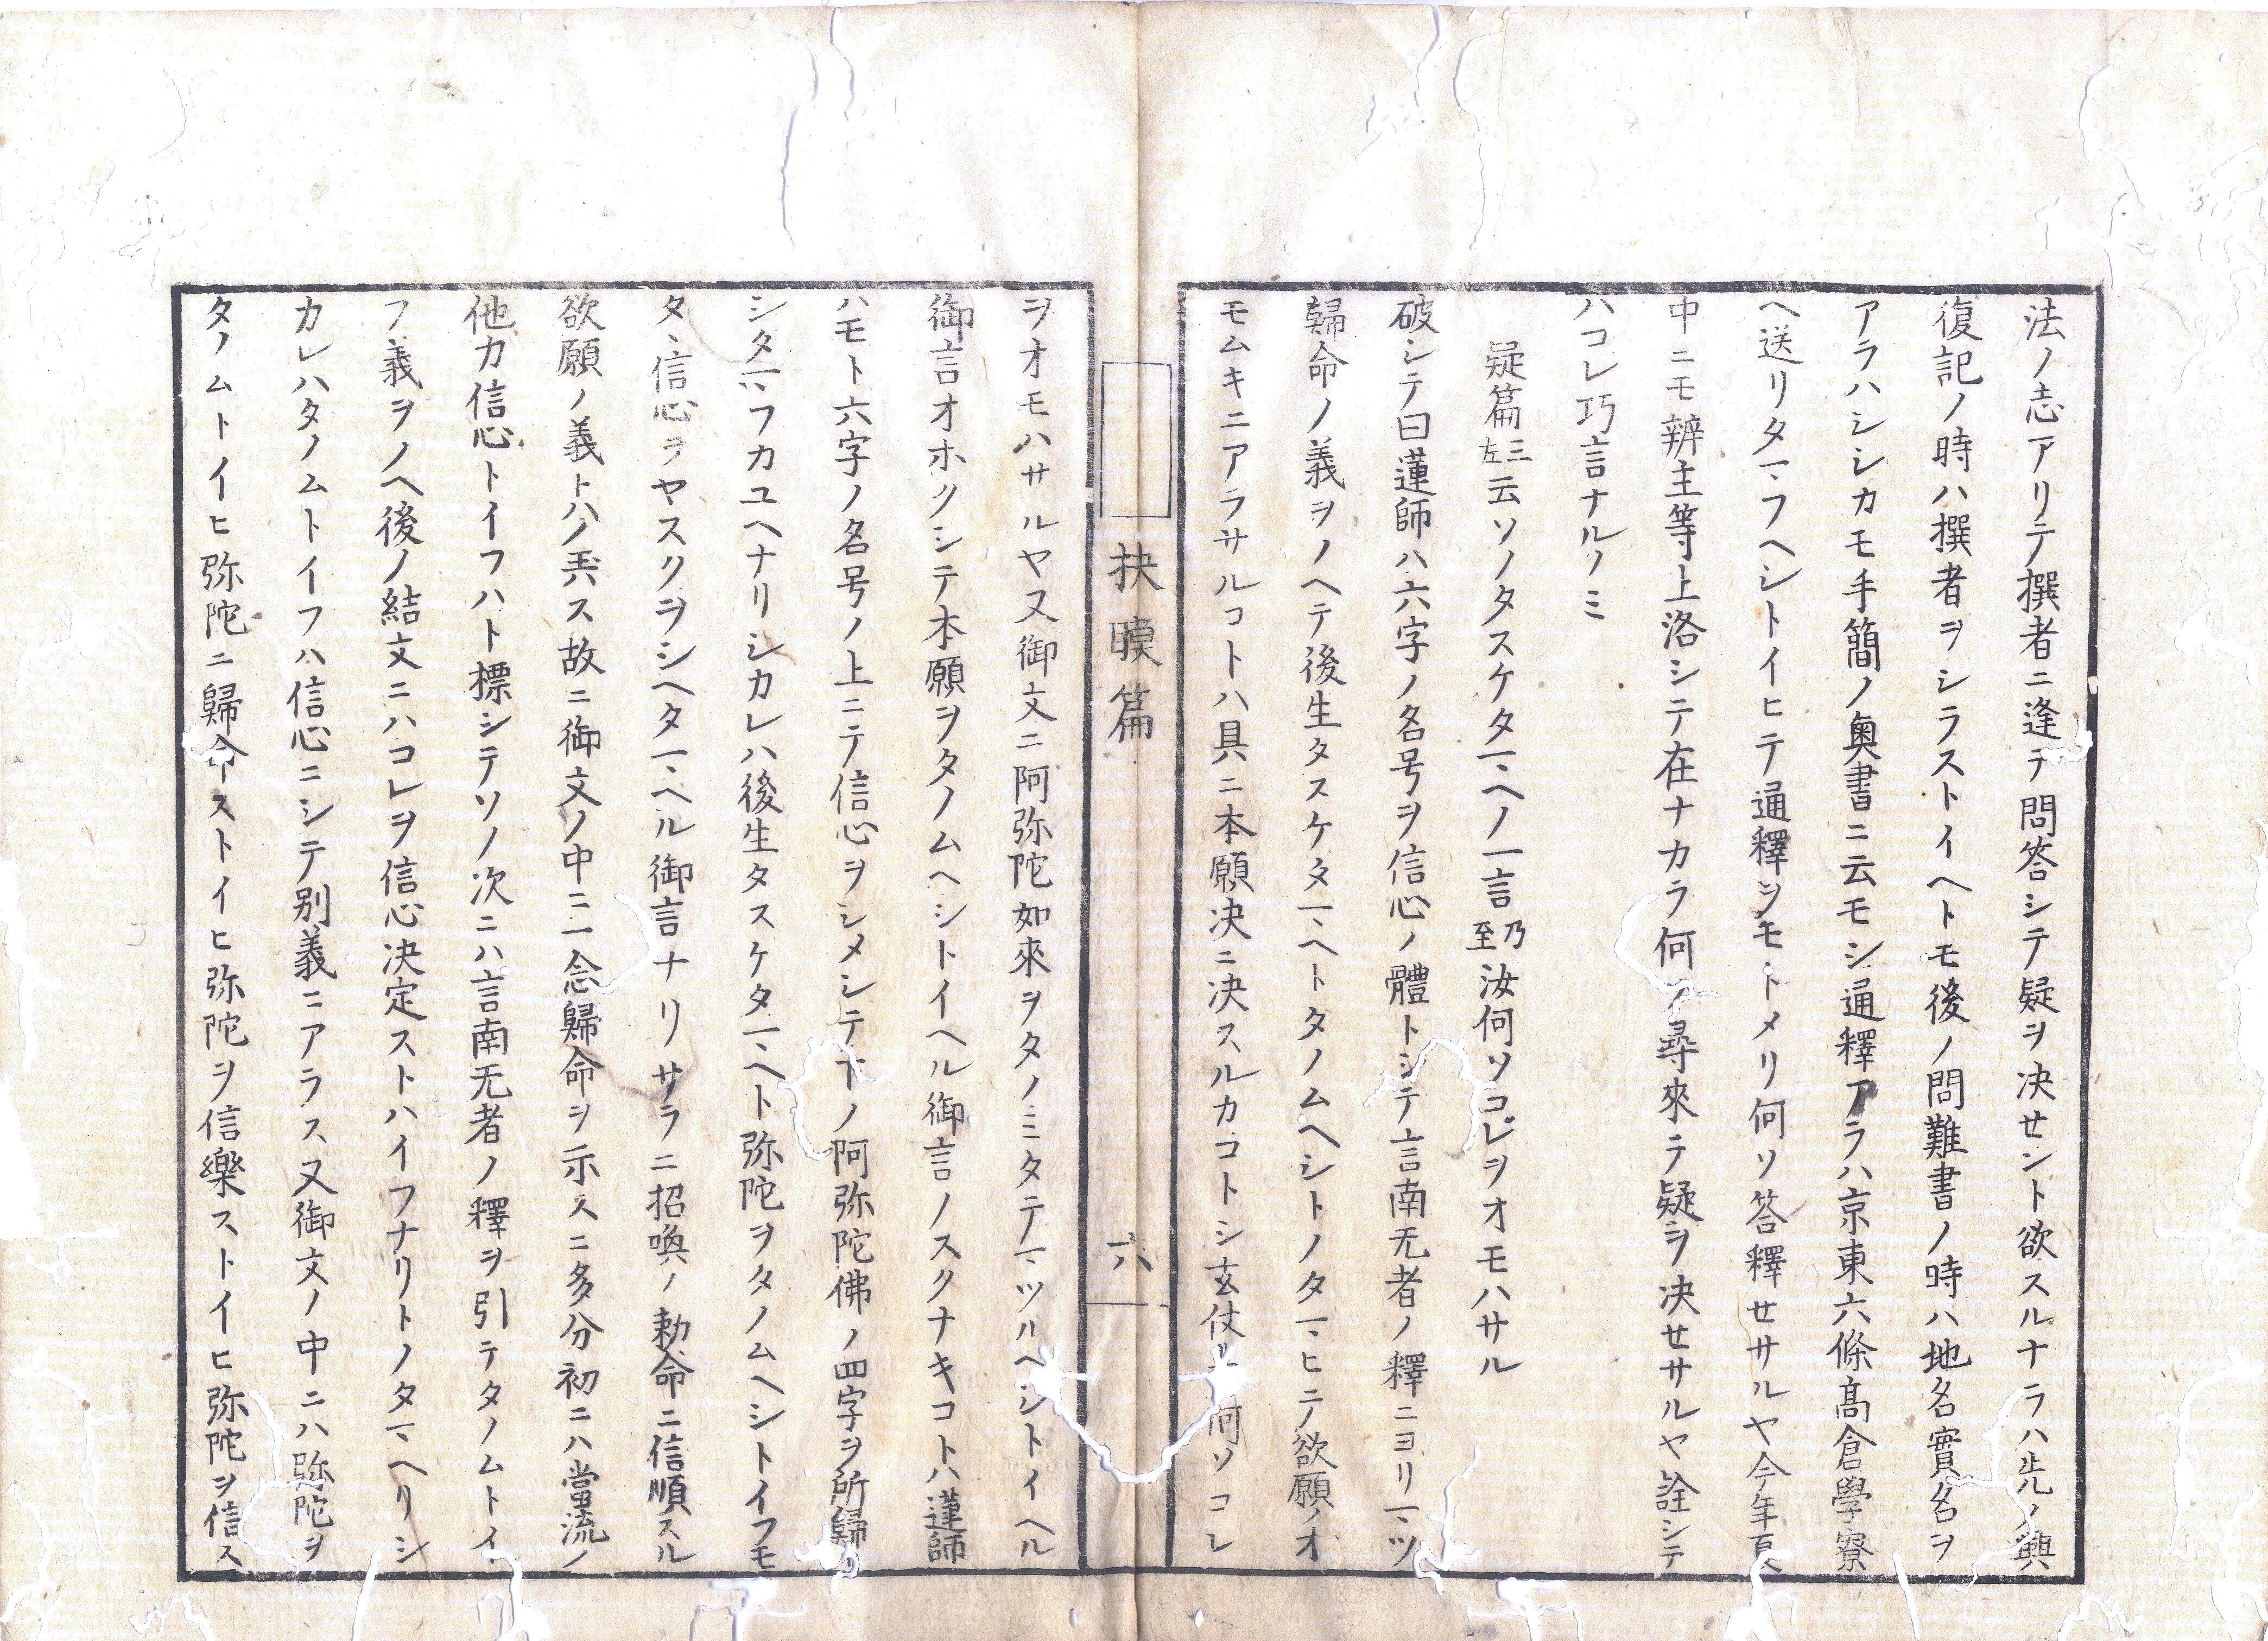 法ノ志アリテ撰者ニ逢テ問答シテ疑ヲ决セント欲スルナラハ先ノ興
復記ノ時ハ撰者ヲシラストイヘトモ後ノ問難書ノ時ハ地名實名ヲ
アラハシシカモ手簡ノ奥書ニ云モシ通釋アラハ京東六條髙倉學寮
ヘ送リタマフヘシトイヒテ通釋ヲモトメリ何ソ答釋セサルヤ今年夏
中ニモ辨主等上洛シテ在ナカラ何ソ尋來テ疑ヲ决セサルヤ詮シテ
ハコレ巧言ナルノミ
疑篇三左云ソノタスケタマヘノ一言乃至汝何ソコレヲオモハサル
破シテ曰蓮師ハ六字ノ名号ヲ信心ノ體トシテ言南无者ノ釋ニヨリマツ
歸命ノ義ヲノヘテ後生タスケタマヘトタノムヘシトノタマヒテ欲願ノオ
モムキニアラサルコトハ具ニ本願决ニ决スルカコトシ玄伎何ソコレ
抉瞙篇
六
ヲオモハサルヤ又御文ニ阿弥陀如來ヲタノミタテマツルヘシトイヘル
御言オホクシテ本願ヲタノムヘシトイヘル御言ノスクナキコトハ蓮師
ハモト六字ノ名号ノ上ニテ信心ヲシメシテ下ノ阿弥陀佛ノ四字ヲ所歸
シタマフカユヘナリシカレハ後生タスケタマヘト弥陀ヲタノムヘシトイフモ
タヽ信心ヲヤスクヲシヘタマヘル御言ナリサラニ招喚ノ勅命ニ信順スル
欲願ノ義トハノ玉ハス故ニ御文ノ中ニ一念歸命ヲ示スニ多分初ニハ當流ノ
他力信心トイフハト標シテソノ次ニハ言南无者ノ釋ヲ引テタノムトイ
フ義ヲノヘ後ノ結文ニハコレヲ信心决定ストハイフナリトノタマヘリシ
カレハタノムトイフハ信心ニシテ別義ニアラス又御文ノ中ニハ弥陀ヲ
タノムトイヒ弥陀ニ歸命ストイヒ弥陀ヲ信樂ストイヒ弥陀ヲ信ス